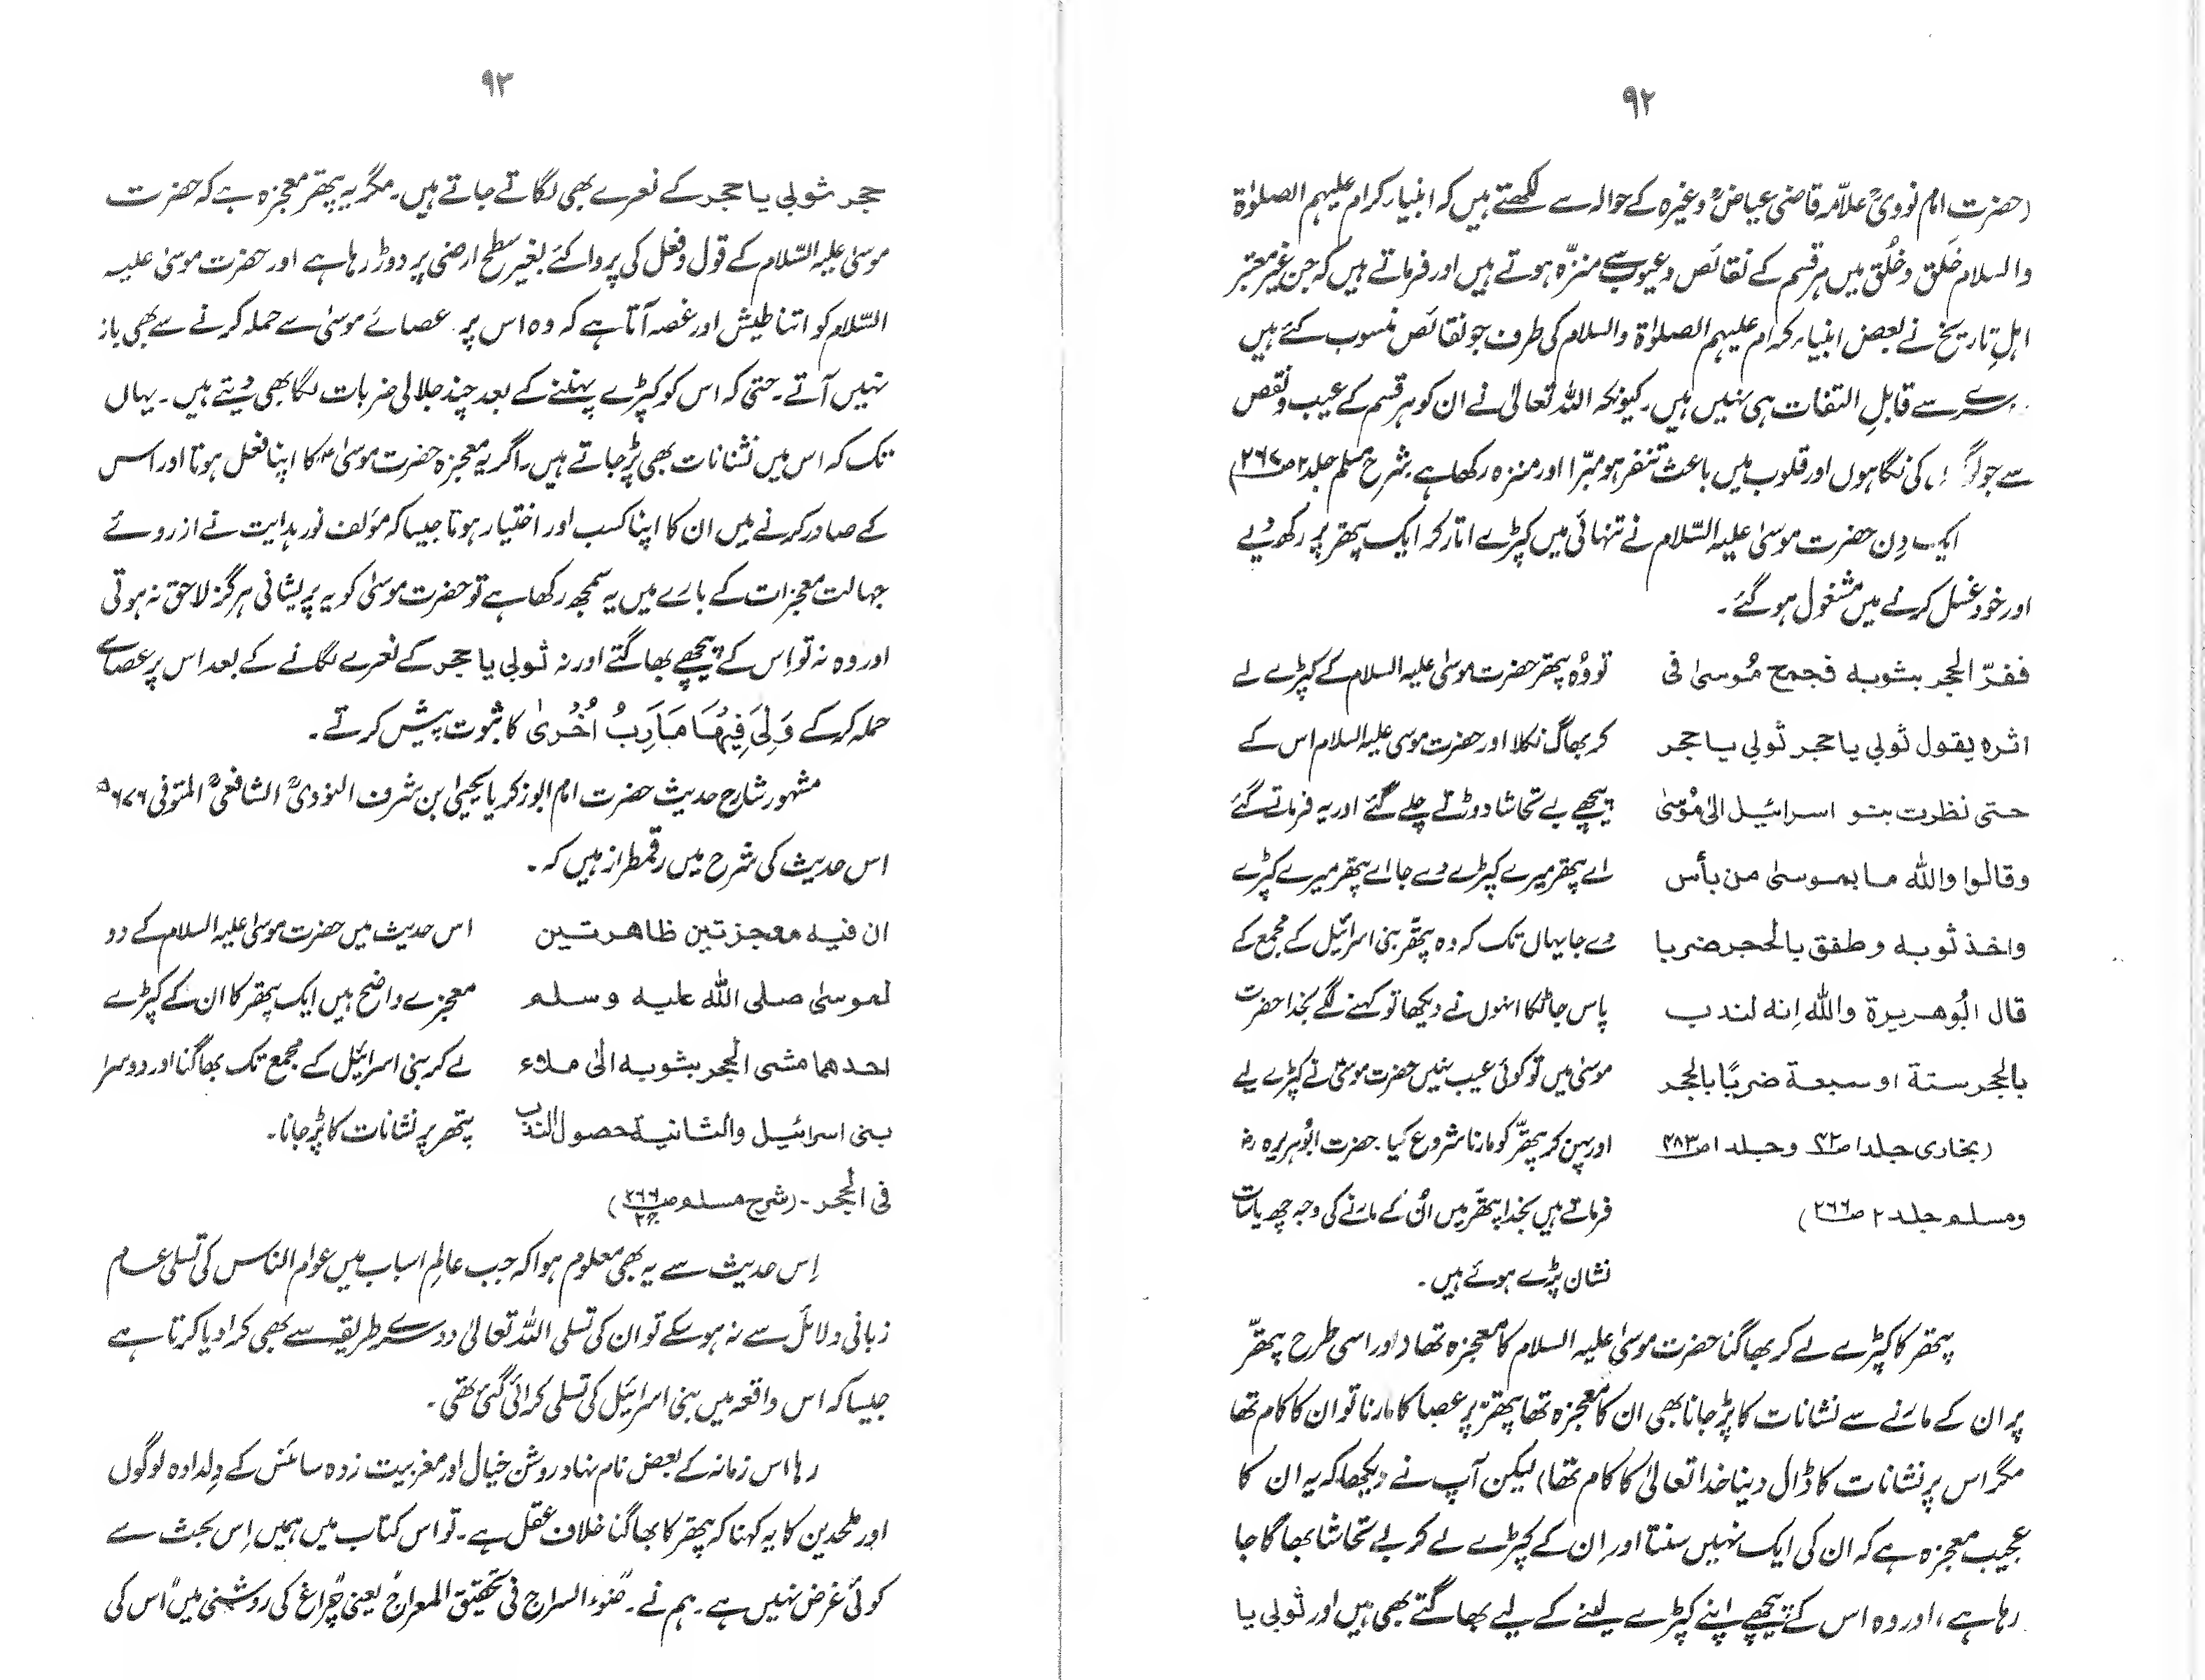 ۹۲
(حضرت امام نوویؒ علامہ قاضی عیاضؒ وغیرہ کے حوالہ سے لکھتے ہیں کہ انبیاء کرام علیہم الصلوٰۃ
والسلام خَلق و خُلق میں ہر قسم کے نقائص و عیوب سے منزّہ ہوتے ہیں اور فرماتے ہیں کہ جن غیر معتبر
اہلِ تاریخ نے بعض انبیاء کرام علیہم الصلوٰۃ والسلام کی طرف جو نقائص منسوب کئے ہیں
سرے سے قابلِ التفات ہی نہیں ہیں۔ کیونکہ اللہ تعالیٰ نے ان کو ہر قسم کے عیب و نقص
سے جو کی نگاہوں اور قلوب میں باعث تنفر ہو مبرّا اور منزہ رکھا ہے شرح مسلم جلد ۲ ص۲۶۷)
ایک دِن حضرت موسیٰ علیہ السّلام نے تنہائی میں کپڑے اتار کر ایک پتھر پر رکھ دیے
اور خود غسل کرنے میں مشغول ہو گئے۔
ففرّ الحجر بثوبه فجمح مُوسىٰ فی
اثره يقول ثوبی یا حجر ثوبی یا حجر
حتی نظرت بنو اسرائیل الیٰ مُوسیٰ
وقالوا واللہ ما بموسیٰ من بأس
واخذ ثوبه وطفق بالحجر ضربا
قال ابُوهریرة واللہ اِنه لندب
بالحجر ستة او سبعة ضربًا بالحجر
(بخاری جلد ا ص۴۲ وجلد ا ص۴۸۳
ومسلم جلد ۲ ص۲۶۶)
تو وُہ پتھر حضرت موسیٰ علیہ السلام کے کپڑے لے
کر بھاگ نکلا اور حضرت موسیٰ علیہ السلام اس کے
پیچھے بے تحاشا دوڑتے چلے گئے اور یہ فرماتے گئے
اے پتھر میرے کپڑے دے جا اے پتھر میرے کپڑے
دے جا یہاں تک کہ وہ پتھّر بنی اسرائیل کے مجمع کے
پاس جا ٹکا انہوں نے دیکھا تو کہنے لگے بخدا حضرت
موسیٰ میں تو کوئی عیب نہیں حضرت موسیٰ نے کپڑے لیے
اور پہن کر پتھّر کو مارنا شروع کیا۔ حضرت ابُوہریرہ رض
فرماتے ہیں بخدا پتھّر میں اُن کے مارنے کی وجہ چھ یا سات
نشان پڑے ہوئے ہیں۔
پتھر کا کپڑے لے کر بھاگنا حضرت موسیٰ علیہ السلام کا معجزہ تھا (اور اسی طرح پتھّر
پر ان کے مارنے سے نشانات کا پڑ جانا بھی ان کا معجزہ تھا پتھّر پر عصا کا مارنا تو ان کا کام تھا
مگر اس پر نشانات کا ڈال دینا خدا تعالیٰ کا کام تھا) لیکن آپ نے دیکھا کہ یہ ان کا
عجیب معجزہ ہے کہ ان کی ایک نہیں سنتا اور ان کے کپڑے لے کر بے تحاشا بھاگا جا
رہا ہے، اور وہ اس کے پیچھے اپنے کپڑے لینے کے لیے بھاگتے بھی ہیں اور ثوبی یا
۹۳
حجر ثوبی یا حجر کے نعرے بھی لگاتے جاتے ہیں۔ مگر یہ پتھّر معجزہ ہے کہ حضرت
موسیٰ علیہ السّلام کے قول و فعل کی پروا کئے بغیر سطح ارضی پر دوڑ رہا ہے اور حضرت موسیٰ علیہ
السّلام کو اتنا طیش اور غصہ آتا ہے کہ وہ اس پر عصائے موسیٰ سے حملہ کرنے سے بھی باز
نہیں آتے۔ حتی کہ اس کو کپڑے پہننے کے بعد چند جلالی ضربات لگا بھی دیتے ہیں۔ یہاں
تک کہ اس میں نشانات بھی پڑ جاتے ہیں۔ اگر یہ معجزہ حضرت موسیٰؑ کا اپنا فعل ہوتا اور اس
کے صادر کرنے میں ان کا اپنا کسب اور اختیار ہوتا جیسا کہ مؤلف نور ہدایت نے ازروئے
جہالت معجزات کے بارے میں یہ سمجھ رکھا ہے تو حضرت موسیٰ کو یہ پریشانی ہرگز لاحق نہ ہوتی
اور وہ نہ تو اِس کے پیچھے بھاگتے اور نہ ثوبی یا حجر کے نعرے لگانے کے بعد اس پر عصا سے
حملہ کر کے وَلِیَ فِیْهَا مَاٰرِبُ اُخْرٰی کا ثبوت پیش کرتے۔
مشہور شارح حدیث حضرت امام ابوزکریا یحییٰ بن شرف النوویؒ الشافعیؒ المتوفی ۶۷۶ھ
اس حدیث کی شرح میں رقمطراز ہیں کہ۔
ان فیه معجزتین ظاهرتین
لموسیٰ صلی اللہ علیه وسلم
احدهما مشی الحجر بثوبه الیٰ ملاء
بنی اسرائیل والثانیة حصول الندب
فی الحجر۔ (شرح مسلم ص۲۶۶ ج۲)
اس حدیث میں حضرت موسیٰ علیہ السلام کے دو
معجزے واضح ہیں ایک پتھر کا ان کے کپڑے
لے کر بنی اسرائیل کے مجمع تک بھاگنا اور دوسرا
پتھر پر نشانات کا پڑ جانا۔
اِس حدیث سے یہ بھی معلوم ہوا کہ جب عالمِ اسباب میں عوام الناس کی تسلی عام
زبانی دلائل سے نہ ہو سکے تو ان کی تسلی اللہ تعالیٰ دوسرے طریقے سے بھی کرا دیا کرتا ہے
جیسا کہ اس واقعہ میں بنی اسرائیل کی تسلی کرائی گئی تھی۔
رہا اس زمانہ کے بعض نام نہاد روشن خیال اور مغربیت زدہ سائنس کے دِلدادہ لوگوں
اور ملحدین کا یہ کہنا کہ پتھر کا بھاگنا خلاف عقل ہے۔ تو اس کتاب میں ہمیں اِس بحث سے
کوئی غرض نہیں ہے۔ ہم نے۔ "ضوء السراج فی تحقیق المعراج" یعنی "چراغ کی روشنی میں" اُس کی